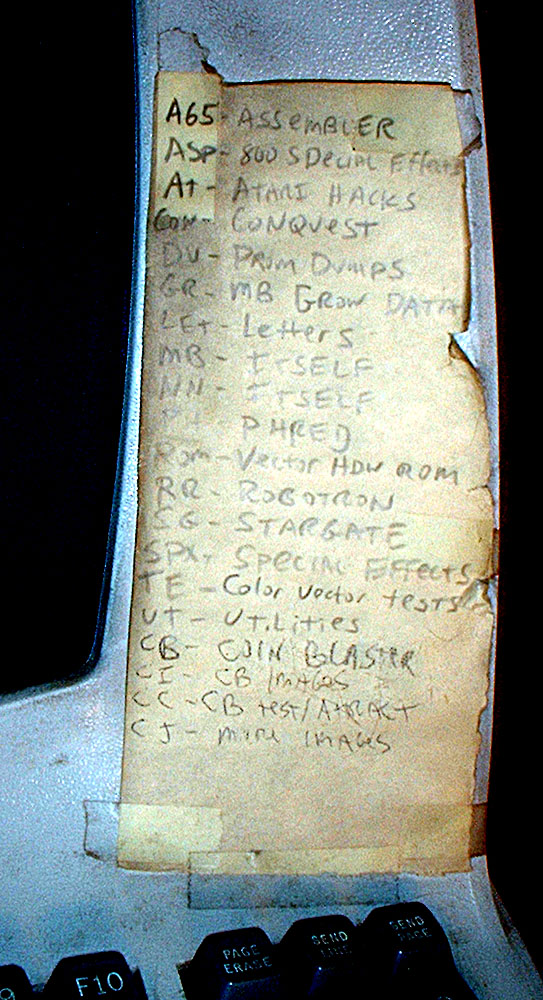 A65- ASSEMBLER
ASP- 800 SPECIAL Effects
At- ATARI HACKS
CON- CONQUEST
DU- PRIM DUMPS
GR- MB GROW DATA
LEt- Letters
MB- ITSELF
NN- ITSELF
PH- PHRED
Rom- Vector HDW ROM
RR- ROBOTRON
SG- STARGATE
SPX- SPECIAL EFFECTS
TE - Color Vector tests
UT- UTiLities
CB- COIN BLASTER
CI- CB IMAGES
CC -CB test/AttRACT
CJ- MORE IMAGES
9 F10 PAGE ERASE SEND LINE SEND PAGE